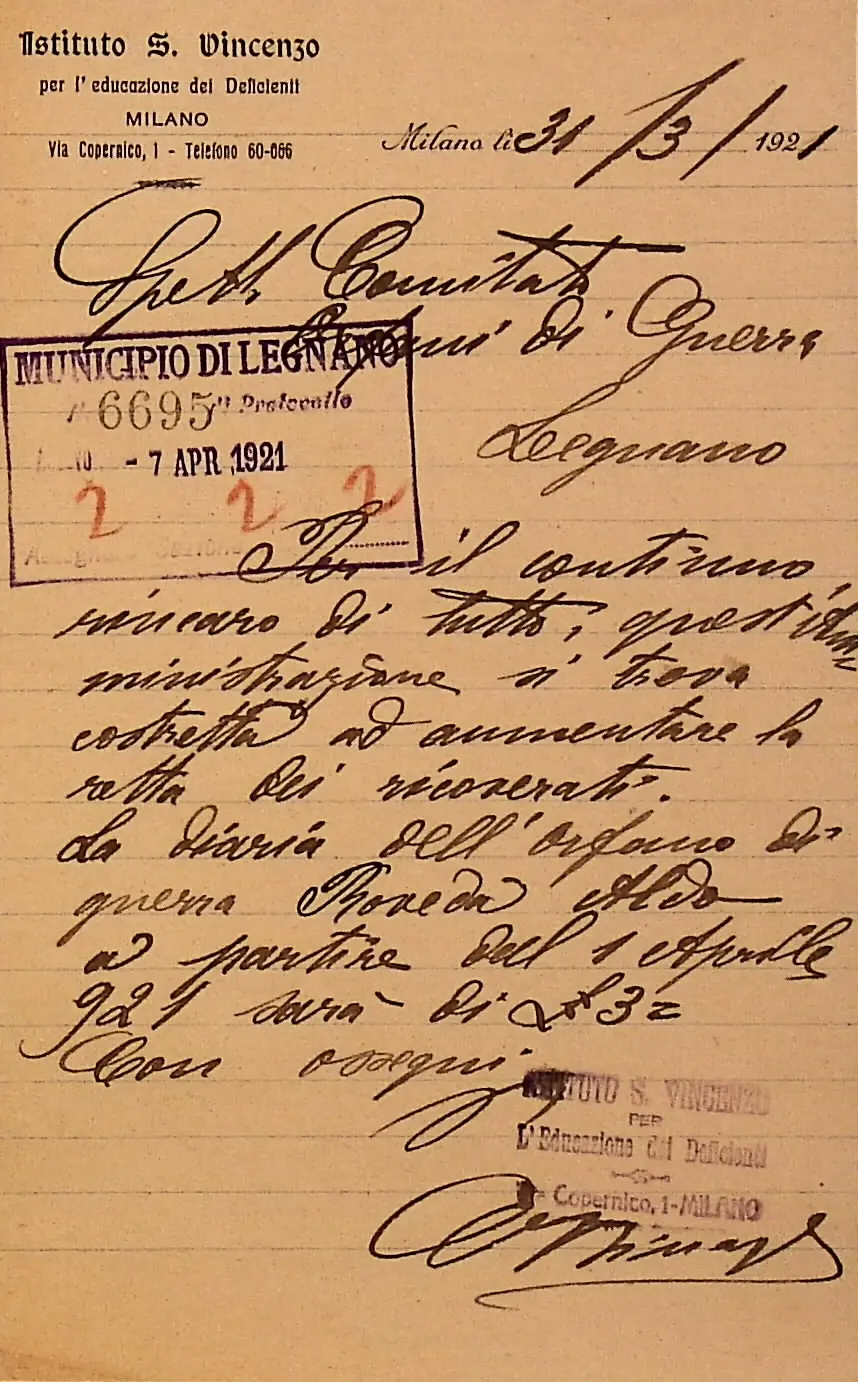 Istituto S. Vincenzo
per l'educazione dei Deficienti
MILANO
Via Copernico, 1 - Telefono 60-666
Milano li 31/3/1921
Spett. Comitato
Orfani di Guerra
Legnano
MUNICIPIO DI LEGNANO
6695 Protocollo
- 7 APR 1921
2 2 2
Sezione
Per il continuo
rincaro di tutto, quest'Am=
ministrazione si trova
costretta ad aumentare la
retta dei ricoverati.
La diaria dell'orfano di
guerra Roveda Aldo
a partire dal 1 Aprile
921 sarà di £ 3=
Con ossequi
ISTITUTO S. VINCENZO
PER
L'Educazione dei Deficienti
Copernico, 1-MILANO